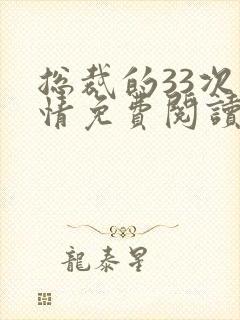 总裁的33次
情免費閱讀
龍泰星